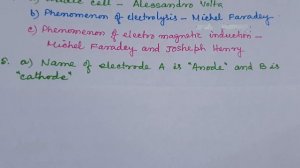 cell - Alessandro Volta
b) Phenomenon of electrolysis - Michel Faradey
c) Phenomenon of electro magnetic induction -
Michel Faradey and Josheph Henry
5. a) Name of electrode A is "Anode" and B is
"cathode"